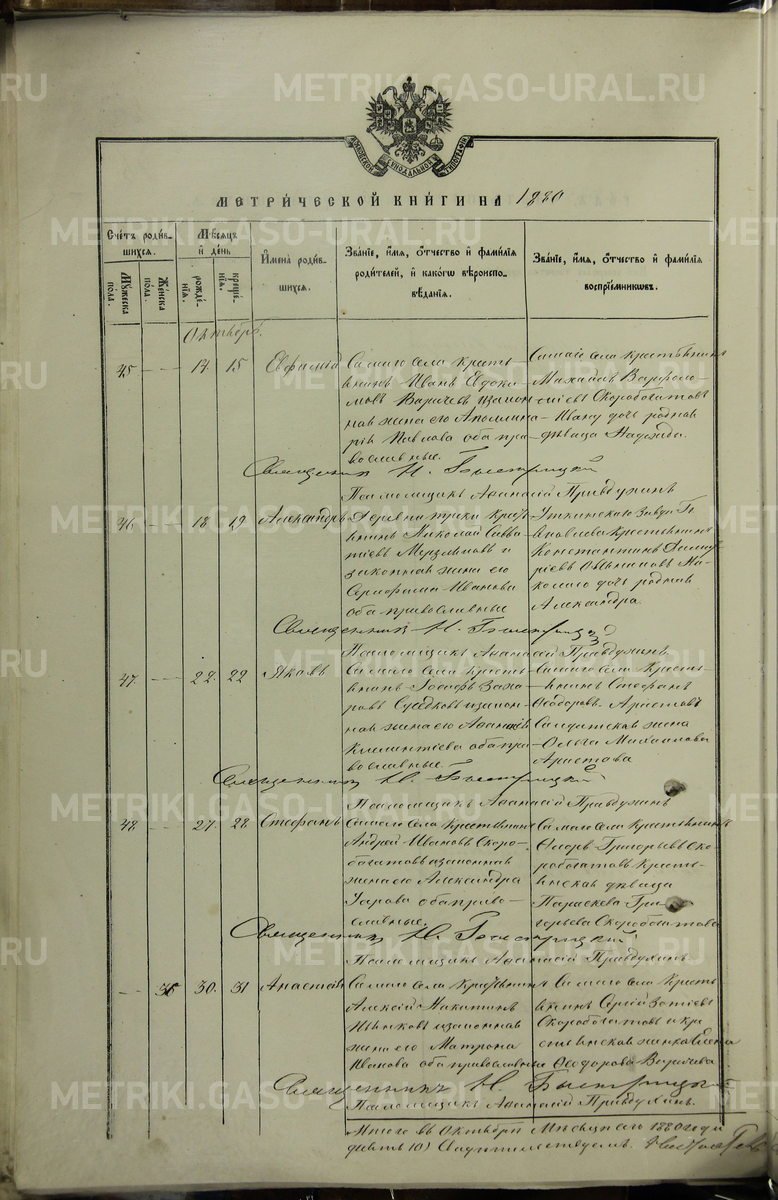 METRIKI.GASO-URAL.RU
МЕТРИ́ЧЕСКОЙ КНИ́ГИ НА 1880
Сче́тъ роди́в-
шихся.
Му́жеска
по́ла.
Же́нска
по́ла.
Мѣ́сяцъ
и҆ де́нь
рожде́-
нїѧ.
креще́-
нїѧ.
И҆мена̀ роди́в-
шихся.
Зва́нїе, и҆́мѧ, ѻ҆́тчество и҆ фами́лїѧ
роди́телей, и҆ како́гѡ вѣроиспо-
вѣ́данїѧ.
Зва́нїе, и҆́мѧ, ѻ҆́тчество и҆ фами́лїѧ
воспрїе́мникѡвъ.
Октябрь.
45 14 15 Евфимій
Самаго села кресть-
янинъ Иванъ Евдоки-
мовъ Варачевъ и закон-
ная жена его Аполлина-
рія Павлова оба пра-
вославные.
Самаго села крестьянинъ
Михаилъ Варфоло-
меевъ Скоробогатовъ
Ивану дочь родная
дѣвица Надежда.
Священникъ Н. Быстрицкій
Псаломщикъ Афанасій Правдухинъ
46 18 19 Александръ
Деревни крестья-
нинъ Николай Савва-
тіевъ и
законная жена его
Серафима Иванова
оба православные
Уткинскаго завода
крестьянинъ
Константинъ
Ни-
колаю дочь родная
Александра.
Священникъ Н. Быстрицкій
Псаломщикъ Афанасій Правдухинъ
47. 22. 22 Іяковъ
Самаго села кресть-
янинъ Іосифъ Заха-
ровъ Сусѣдковъ и закон-
ная жена его Афанасія
Климентіева оба пра-
вославные.
Самаго села кресть-
янинъ Стефанъ
Ѳеодоровъ Аристовъ
Солдатская жена
Ольга Михаилова
Аристова
Священникъ Н. Быстрицкій
Псаломщикъ Афанасій Правдухинъ
48. 27. 28. Стефанъ
Самаго села крестьянинъ
Андрей Ивановъ Скоро-
богатовъ и законная
жена его Александра
Уарова оба право-
славные.
Самаго села крестьянинъ
Егоръ Григорьевъ Ско-
робогатовъ кресть-
янская дѣвица
Параскева Гри-
горьева Скоробогатова
Священникъ Н. Быстрицкій
Псаломщикъ Афанасій Правдухинъ
35 30. 31 Анастасія
Самаго села крестьянинъ
Алексій Никитинъ
и законная
жена его Матрона
Иванова оба православные
Самаго села кресть-
янинъ Сергій Зотіевъ
Скоробогатовъ и кре-
стьянская женка Елена
Ѳеодорова Варачева
Священникъ Н. Быстрицкій
Псаломщикъ Афанасій Правдухинъ.
Итого въ Октябрѣ мѣсяцѣ сего 1880 года
10) Свидѣтельствуемъ.